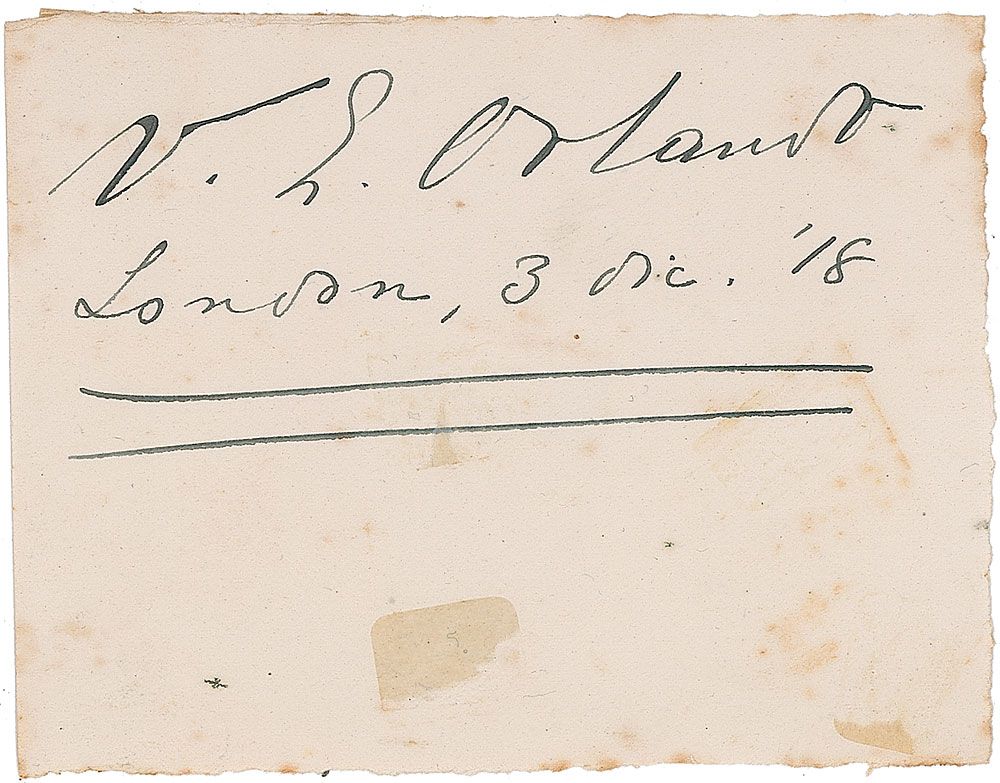 V. E. Orlando
London, 3 dic. '18